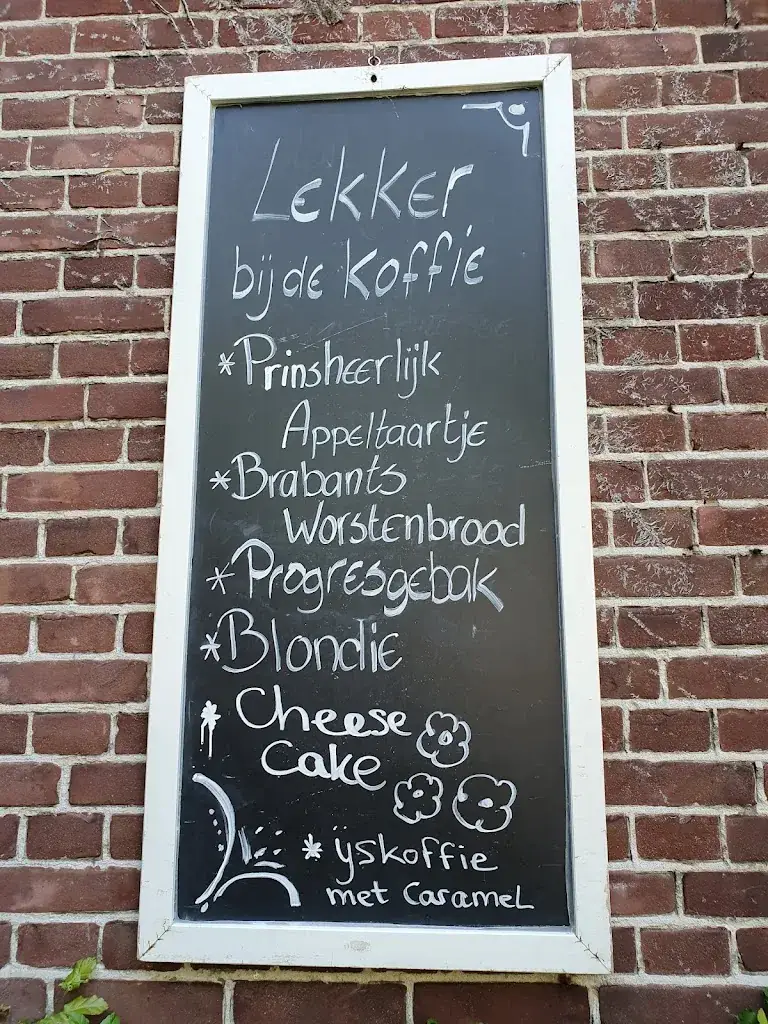 Lekker
bij de koffie
* Prinsheerlijk
Appeltaartje
* Brabants
Worstenbrood
* Progresgebak
* Blondie
* Cheese
cake
* ÿskoffie
met caramel